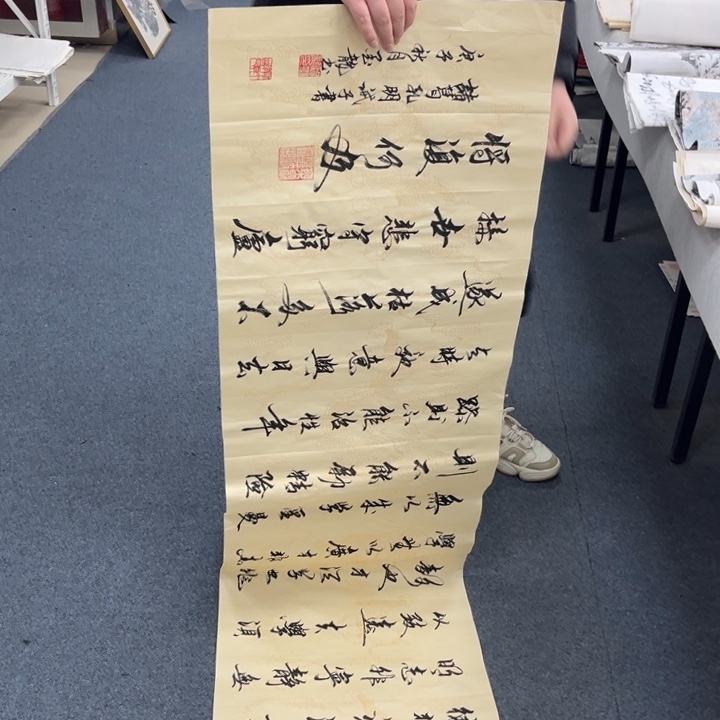 明志非寧靜無
以致遠夫學須
靜也才須學也非
學無以廣才非志
無以成學慆慢
則不能勵精險
躁則不能治性年
與時馳意與日去
遂成枯落多不
接世悲守窮廬
將復何及
諸葛孔明誡子書
庚子秋月至龍書